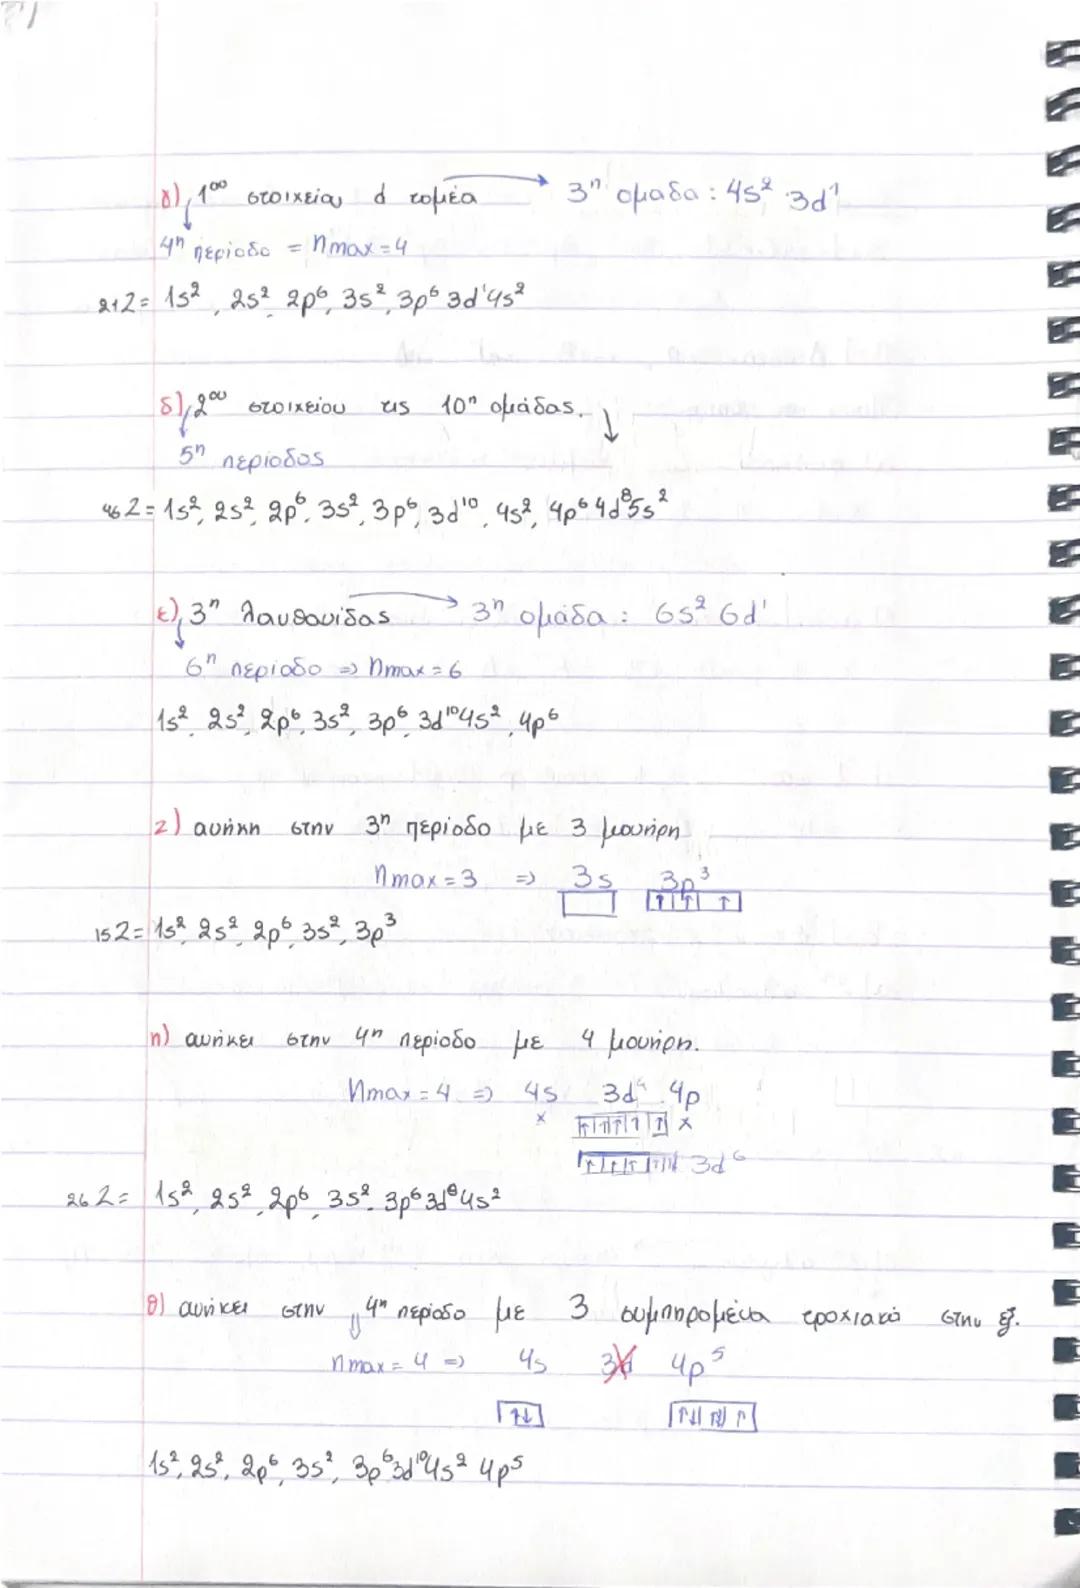 γ) 1ου στοιχείου d τομέα → 3η ομαδα : 4s² 3d¹
4η περίοδο = nmax = 4
21Z = 1s², 2s², 2p⁶, 3s², 3p⁶ 3d¹ 4s²
δ) 2ου στοιχείου της 10η ομάδας.
5η περίοδος
46Z = 1s², 2s², 2p⁶, 3s², 3p⁶, 3d¹⁰, 4s², 4p⁶ 4d⁸ 5s²
ε) 3η λανθανίδας → 3η ομάδα : 6s² 6d¹
6η περίοδο => nmax = 6
1s², 2s², 2p⁶, 3s², 3p⁶, 3d¹⁰ 4s², 4p⁶
ζ) ανήκη στην 3η περίοδο με 3 μονήρη
nmax = 3 => 3s 3p³
↑ ↑ ↑
15Z = 1s², 2s², 2p⁶, 3s², 3p³
η) ανήκει στην 4η περίοδο με 4 μονήρη.
nmax = 4 => 4s 3d⁴ 4p
x x
3d⁶
26Z = 1s², 2s², 2p⁶, 3s², 3p⁶ 3d⁶ 4s²
θ) ανήκει στην 4η περίοδο με 3 συμπηρομένα τροχιακά στην εξ.
nmax = 4 => 4s 3d 4p⁵
↑↓ ↑↓ ↑↓ ↑
1s², 2s², 2p⁶, 3s², 3p⁶ 3d¹⁰ 4s² 4p⁵